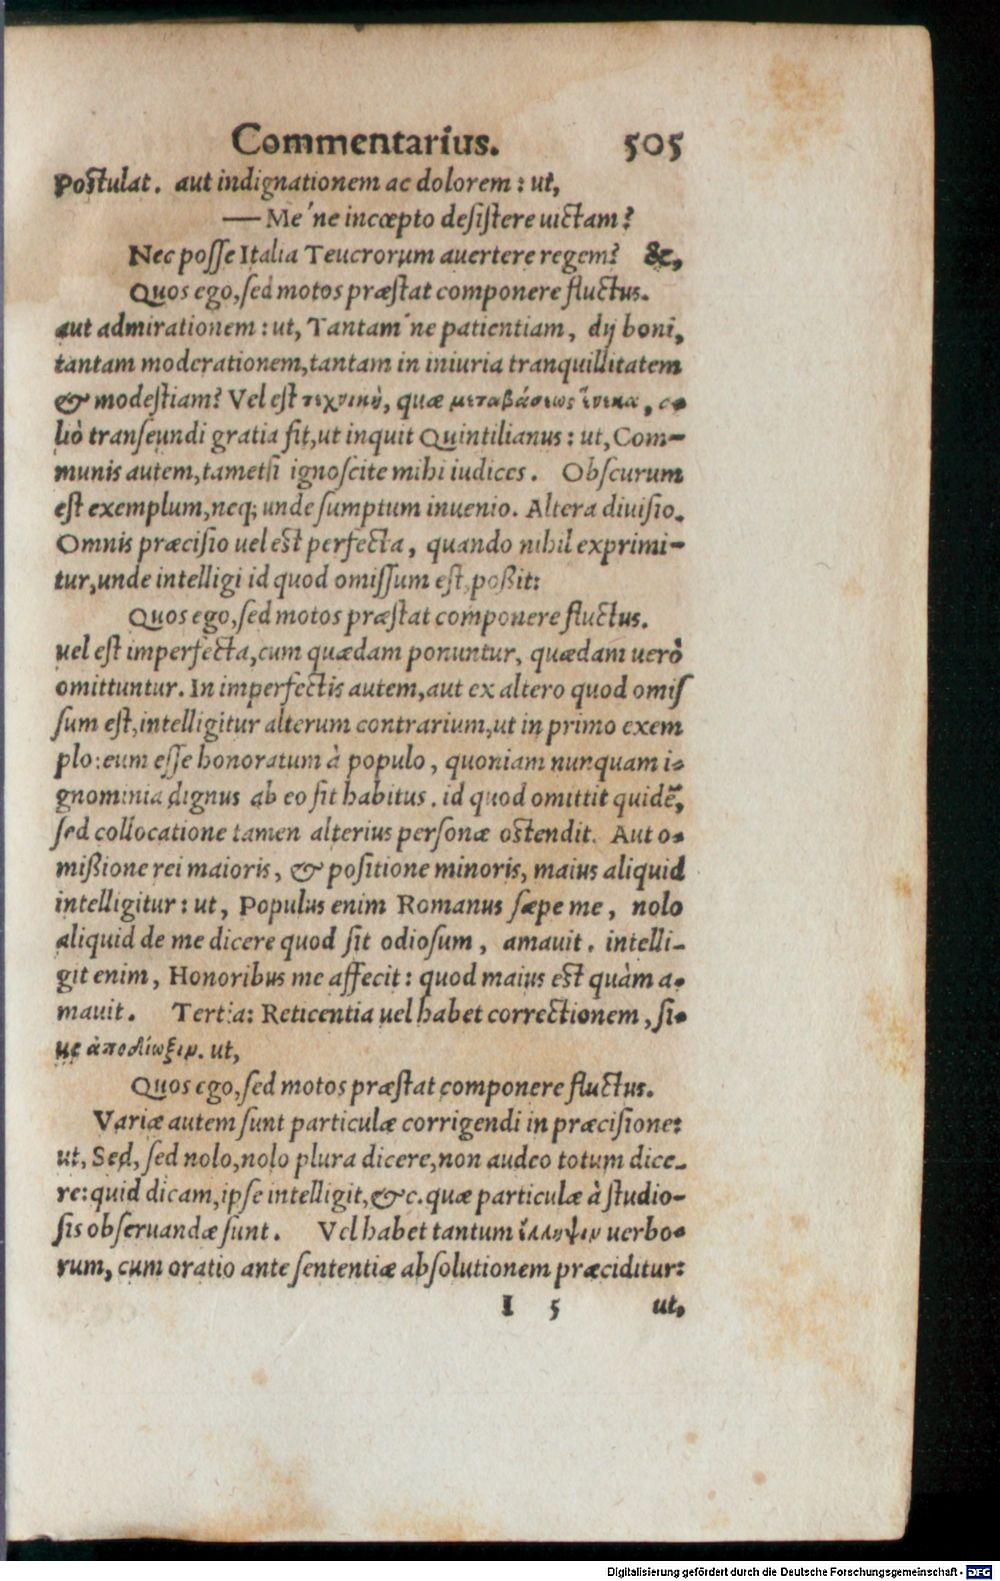 Commentarius. 505
Postulat. aut indignationem ac dolorem: ut,
— Me'ne incœpto desistere uictam?
Nec posse Italia Teucrorum auertere regem? &c,
Quos ego, sed motos præstat componere fluctus.
aut admirationem: ut, Tantam'ne patientiam, dij boni,
tantam moderationem, tantam in iniuria tranquillitatem
& modestiam? Vel est τεχνικὴ, quæ μεταβάσεως ἕνεκα, a-
liò transeundi gratia fit, ut inquit Quintilianus: ut, Com-
munis autem, tametsi ignoscite mihi iudices. Obscurum
est exemplum, neq; unde sumptum inuenio. Altera diuisio.
Omnis præcisio uel est perfecta, quando nihil exprimi-
tur, unde intelligi id quod omissum est, poßit:
Quos ego, sed motos præstat componere fluctus.
uel est imperfecta, cum quædam ponuntur, quædam uerò
omittuntur. In imperfectis autem, aut ex altero quod omis
sum est, intelligitur alterum contrarium, ut in primo exem
plo: eum esse honoratum à populo, quoniam nunquam i-
gnominia dignus ab eo sit habitus. id quod omittit quidẽ,
sed collocatione tamen alterius personæ ostendit. Aut o-
mißione rei maioris, & positione minoris, maius aliquid
intelligitur: ut, Populus enim Romanus sæpe me, nolo
aliquid de me dicere quod sit odiosum, amauit. intelli-
git enim, Honoribus me affecit: quod maius est quàm a-
mauit. Tertia: Reticentia uel habet correctionem, si-
ue ἀποδίωξιν. ut,
Quos ego, sed motos præstat componere fluctus.
Variæ autem sunt particulæ corrigendi in præcisione:
ut, Sed, sed nolo, nolo plura dicere, non audeo totum dice-
re: quid dicam, ipse intelligit, &c. quæ particulæ à studio-
sis obseruandæ sunt. Vel habet tantum ἔλλειψιν uerbo-
rum, cum oratio ante sententiæ absolutionem præciditur:
I 5 ut,
Digitalisierung gefördert durch die Deutsche Forschungsgemeinschaft - DFG